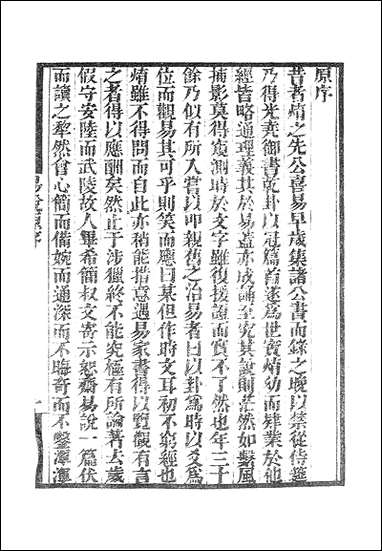 原序
昔者焴之先公喜易早歲集諸公書而錄之晚以禁從侍經
乃得光堯御書乾卦以冠篇首遂為世寶焴幼而肄業於他
經皆略通理義其於易蓋亦成誦至究其說則茫然如繫風
捕影莫得窺測時於文字雖復援證而實不了然也年三十
餘乃似有所入嘗以叩親舊之治易者曰以卦為時以爻為
位而觀易其可乎則笑而應曰某但作時文耳初不窮經也
焴雖不得問而自此亦稍能措意遇易家書得以覽觀有言
之者得以應酬矣然止于涉獵終不能究極有所論著去歲
假守安陸而武陵故人畢希簡叔文寄示恕齋易說一篇伏
而讀之犂然會心簡而備婉而通深而不晦奇而不鑿渾渾